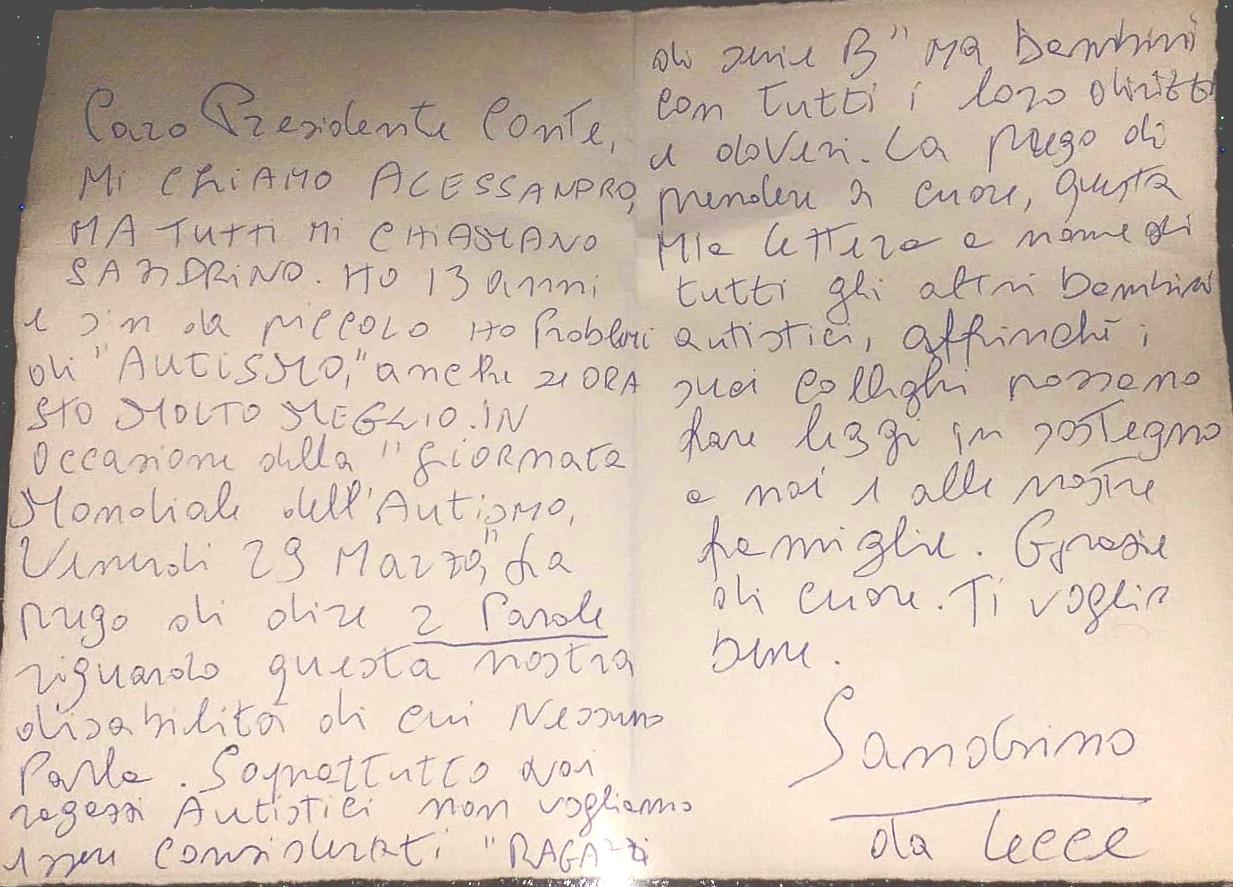 Caro Presidente Conte,
MI CHIAMO ALESSANDRO,
MA TUTTI MI CHIAMANO
SANDRINO. HO 13 anni
e sin da piccolo HO Problemi
di "AUTISMO," anche se ORA
STO MOLTO MEGLIO. IN
Occasione della "Giornata
Mondiale dell'Autismo,
Venerdi 29 Marzo," La
prego di dire 2 Parole
riguardo questa nostra
disabilità di cui Nessuno
Parla. Soprattutto Noi
ragazzi Autistici non vogliamo
essere considerati "RAGAZZI
di serie B" ma bambini
con tutti i loro diritti
e doveri. La prego di
prendere a cuore, questa
Mia lettera a nome di
tutti gli altri bambini
autistici, affinchè i
suoi colleghi possano
fare leggi in sostegno
a noi e alle nostre
famiglie. Grazie
di cuore. Ti voglio
bene.
Sandrino
da Lecce